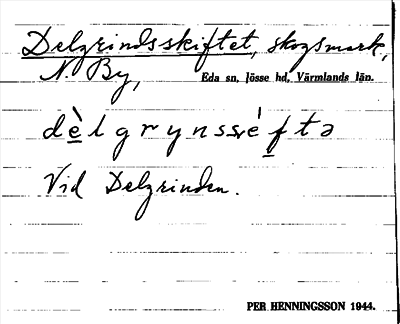 Delgrindsskiftet, skogsmark,
N. By, Eda sn, Jösse hd, Värmlands län.
dèlgrynsséftə
Vid Delgrinden.
PER HENNINGSSON 1944.